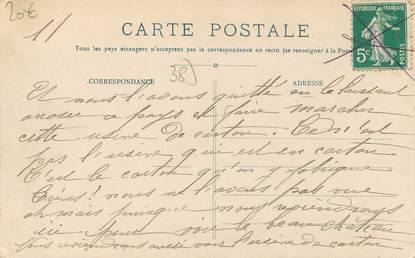 20€
11
CARTE POSTALE
RÉPUBLIQUE FRANÇAISE
5c
POSTES
Tous les pays étrangers n'acceptent pas la correspondance au recto (se renseigner à la Poste)
38)
CORRESPONDANCE
ADRESSE
Et nous l'avons quitté en le laissant
arroser ce pays et faire marcher
cette usine de carton. Ce n'est
pas l'usine qui est en carton
C'est le carton qu'on y fabrique
nous ne l'avons pas vue
oh mais puisque nous reviendrons
ici pour voir le beau château
nous reviendrons aussi voir l'usine de carton